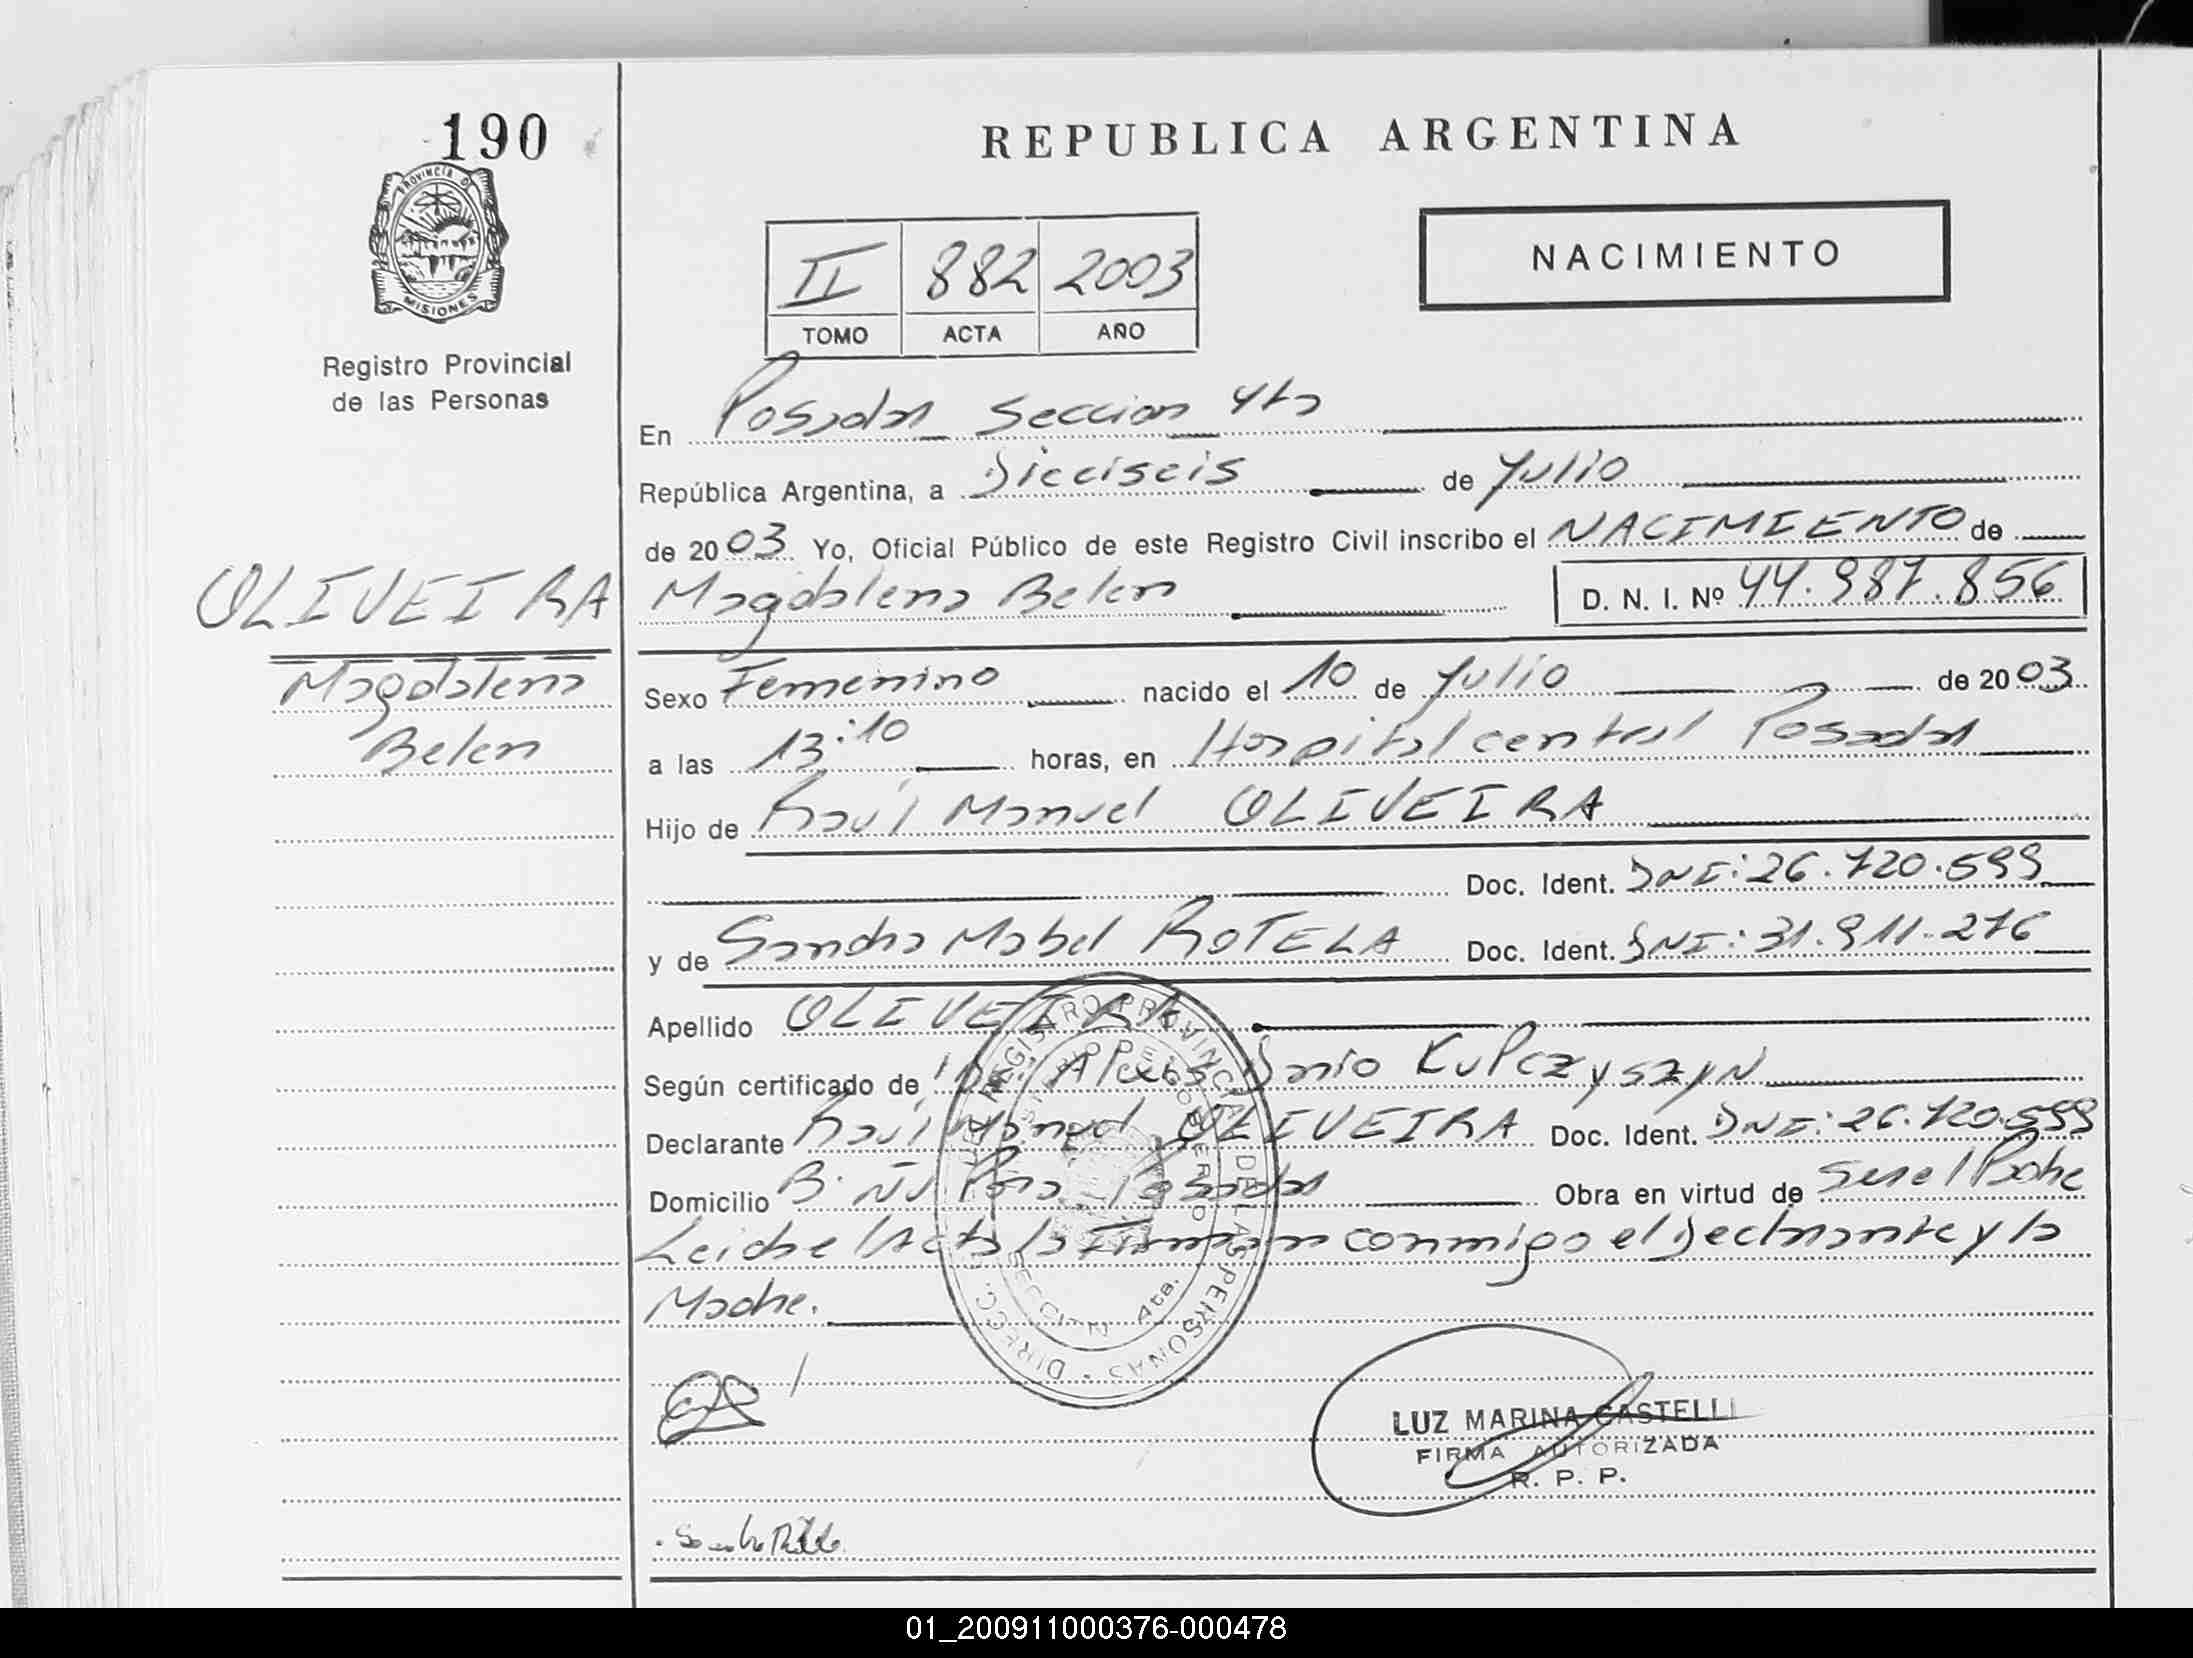 190
REPUBLICA ARGENTINA
PROVINCIA D MISIONES
Registro Provincial
de las Personas
NACIMIENTO
II 882 2003
TOMO ACTA AÑO
En Posadas Seccion 4ta
República Argentina, a Dieciseis de Julio
de 2003 Yo, Oficial Público de este Registro Civil inscribo el NACIMIENTO de
OLIVEIRA
Magdalena Belen D. N. I. Nº 44.987.856
Magdalena
Belen
Sexo Femenino nacido el 10 de Julio de 2003
a las 13:10 horas, en Hospital central Posadas
Hijo de Raúl Manuel OLIVEIRA
Doc. Ident. DNI: 26.720.599
y de Sandra Mabel ROTELA Doc. Ident. DNI: 31.911.276
Apellido OLIVEIRA
Según certificado de Dario Kulpczyszyn
Declarante Raúl Manuel OLIVEIRA Doc. Ident. DNI: 26.720.599
Domicilio B. Ñu Pora Posadas Obra en virtud de Ser el Padre
Leida el Acta la Firman conmigo el Declarante y la
Madre.
DIRECC. REGISTRO PROVINCIAL DE LAS PERSONAS
MINISTERIO DE GOBIERNO
SECCION 4ta.
LUZ MARINA CASTELLI
FIRMA AUTORIZADA
R. P. P.
01_200911000376-000478